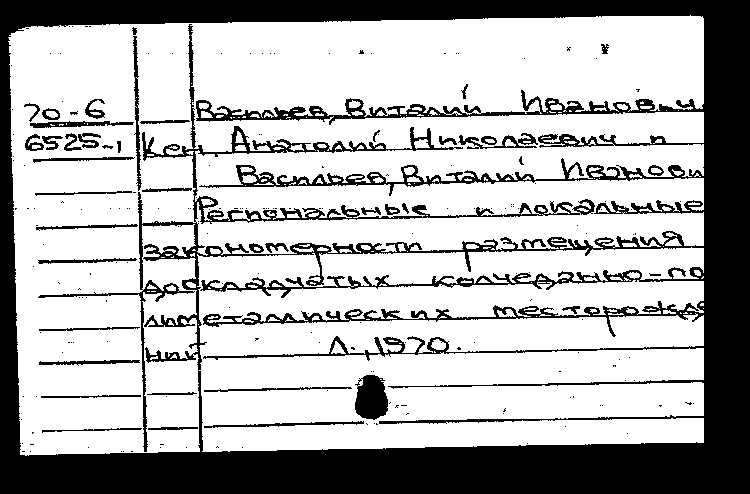 70-6 Васильев, Виталий Иванович.
6525-1 Кен, Анатолий Николаевич и
Васильев, Виталий Иванови
Региональные и локальные
закономерности размещения
доскладчатых колчеданно-по
лиметаллических месторожде
ний Л., 1970.